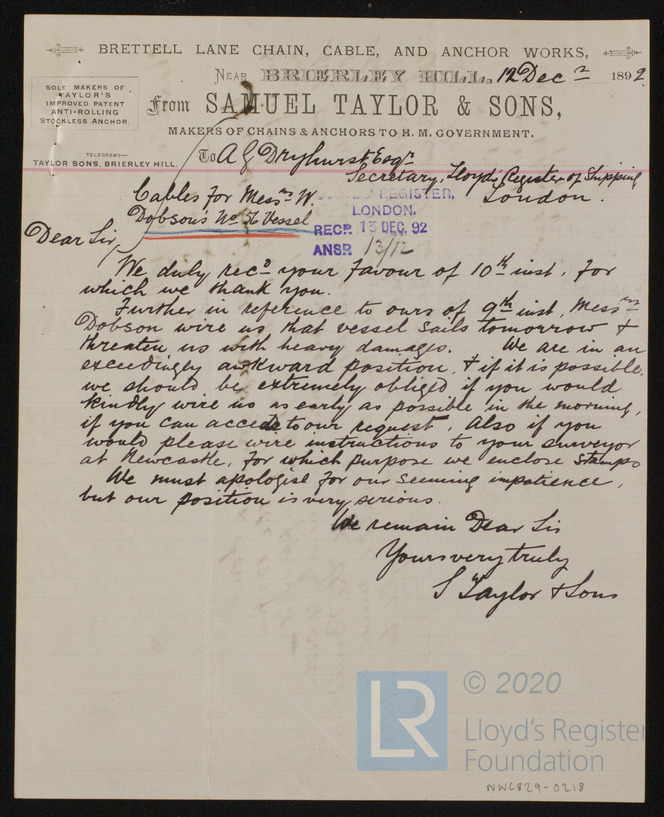 BRETTELL LANE CHAIN, CABLE, AND ANCHOR WORKS,
Near BRIERLEY HILL, 12 Decr 1892
SOLE MAKERS OF
TAYLOR'S
IMPROVED PATENT
ANTI-ROLLING
STOCKLESS ANCHOR.
From SAMUEL TAYLOR & SONS,
MAKERS OF CHAINS & ANCHORS TO H. M. GOVERNMENT.
TELEGRAMS—
TAYLOR SONS, BRIERLEY HILL.
To A G Dryhurst Esqr
Secretary, Lloyd's Register of Shipping
London.
Cables for Messrs W.
Dobson's No Vessel
REGISTER,
LONDON.
RECD 13 DEC. 92
ANSR 13/12
Dear Sir,
We duly recd your favour of 10th inst, for
which we thank you.
Further in reference to ours of 9th inst, Messrs
Dobson wire us that vessel sails tomorrow &
threaten us with heavy damages. We are in an
exceedingly awkward position, & if it is possible,
we should be extremely obliged if you would
kindly wire us as early as possible in the morning,
if you can accede to our request. Also if you
would please wire instructions to your surveyor
at Newcastle, for which purpose we enclose stamps
We must apologise for our seeming impatience,
but our position is very serious.
We remain Dear Sir
Yours very truly
S Taylor & Sons
LR
© 2020
Lloyd's Register
Foundation
NWC829-0218